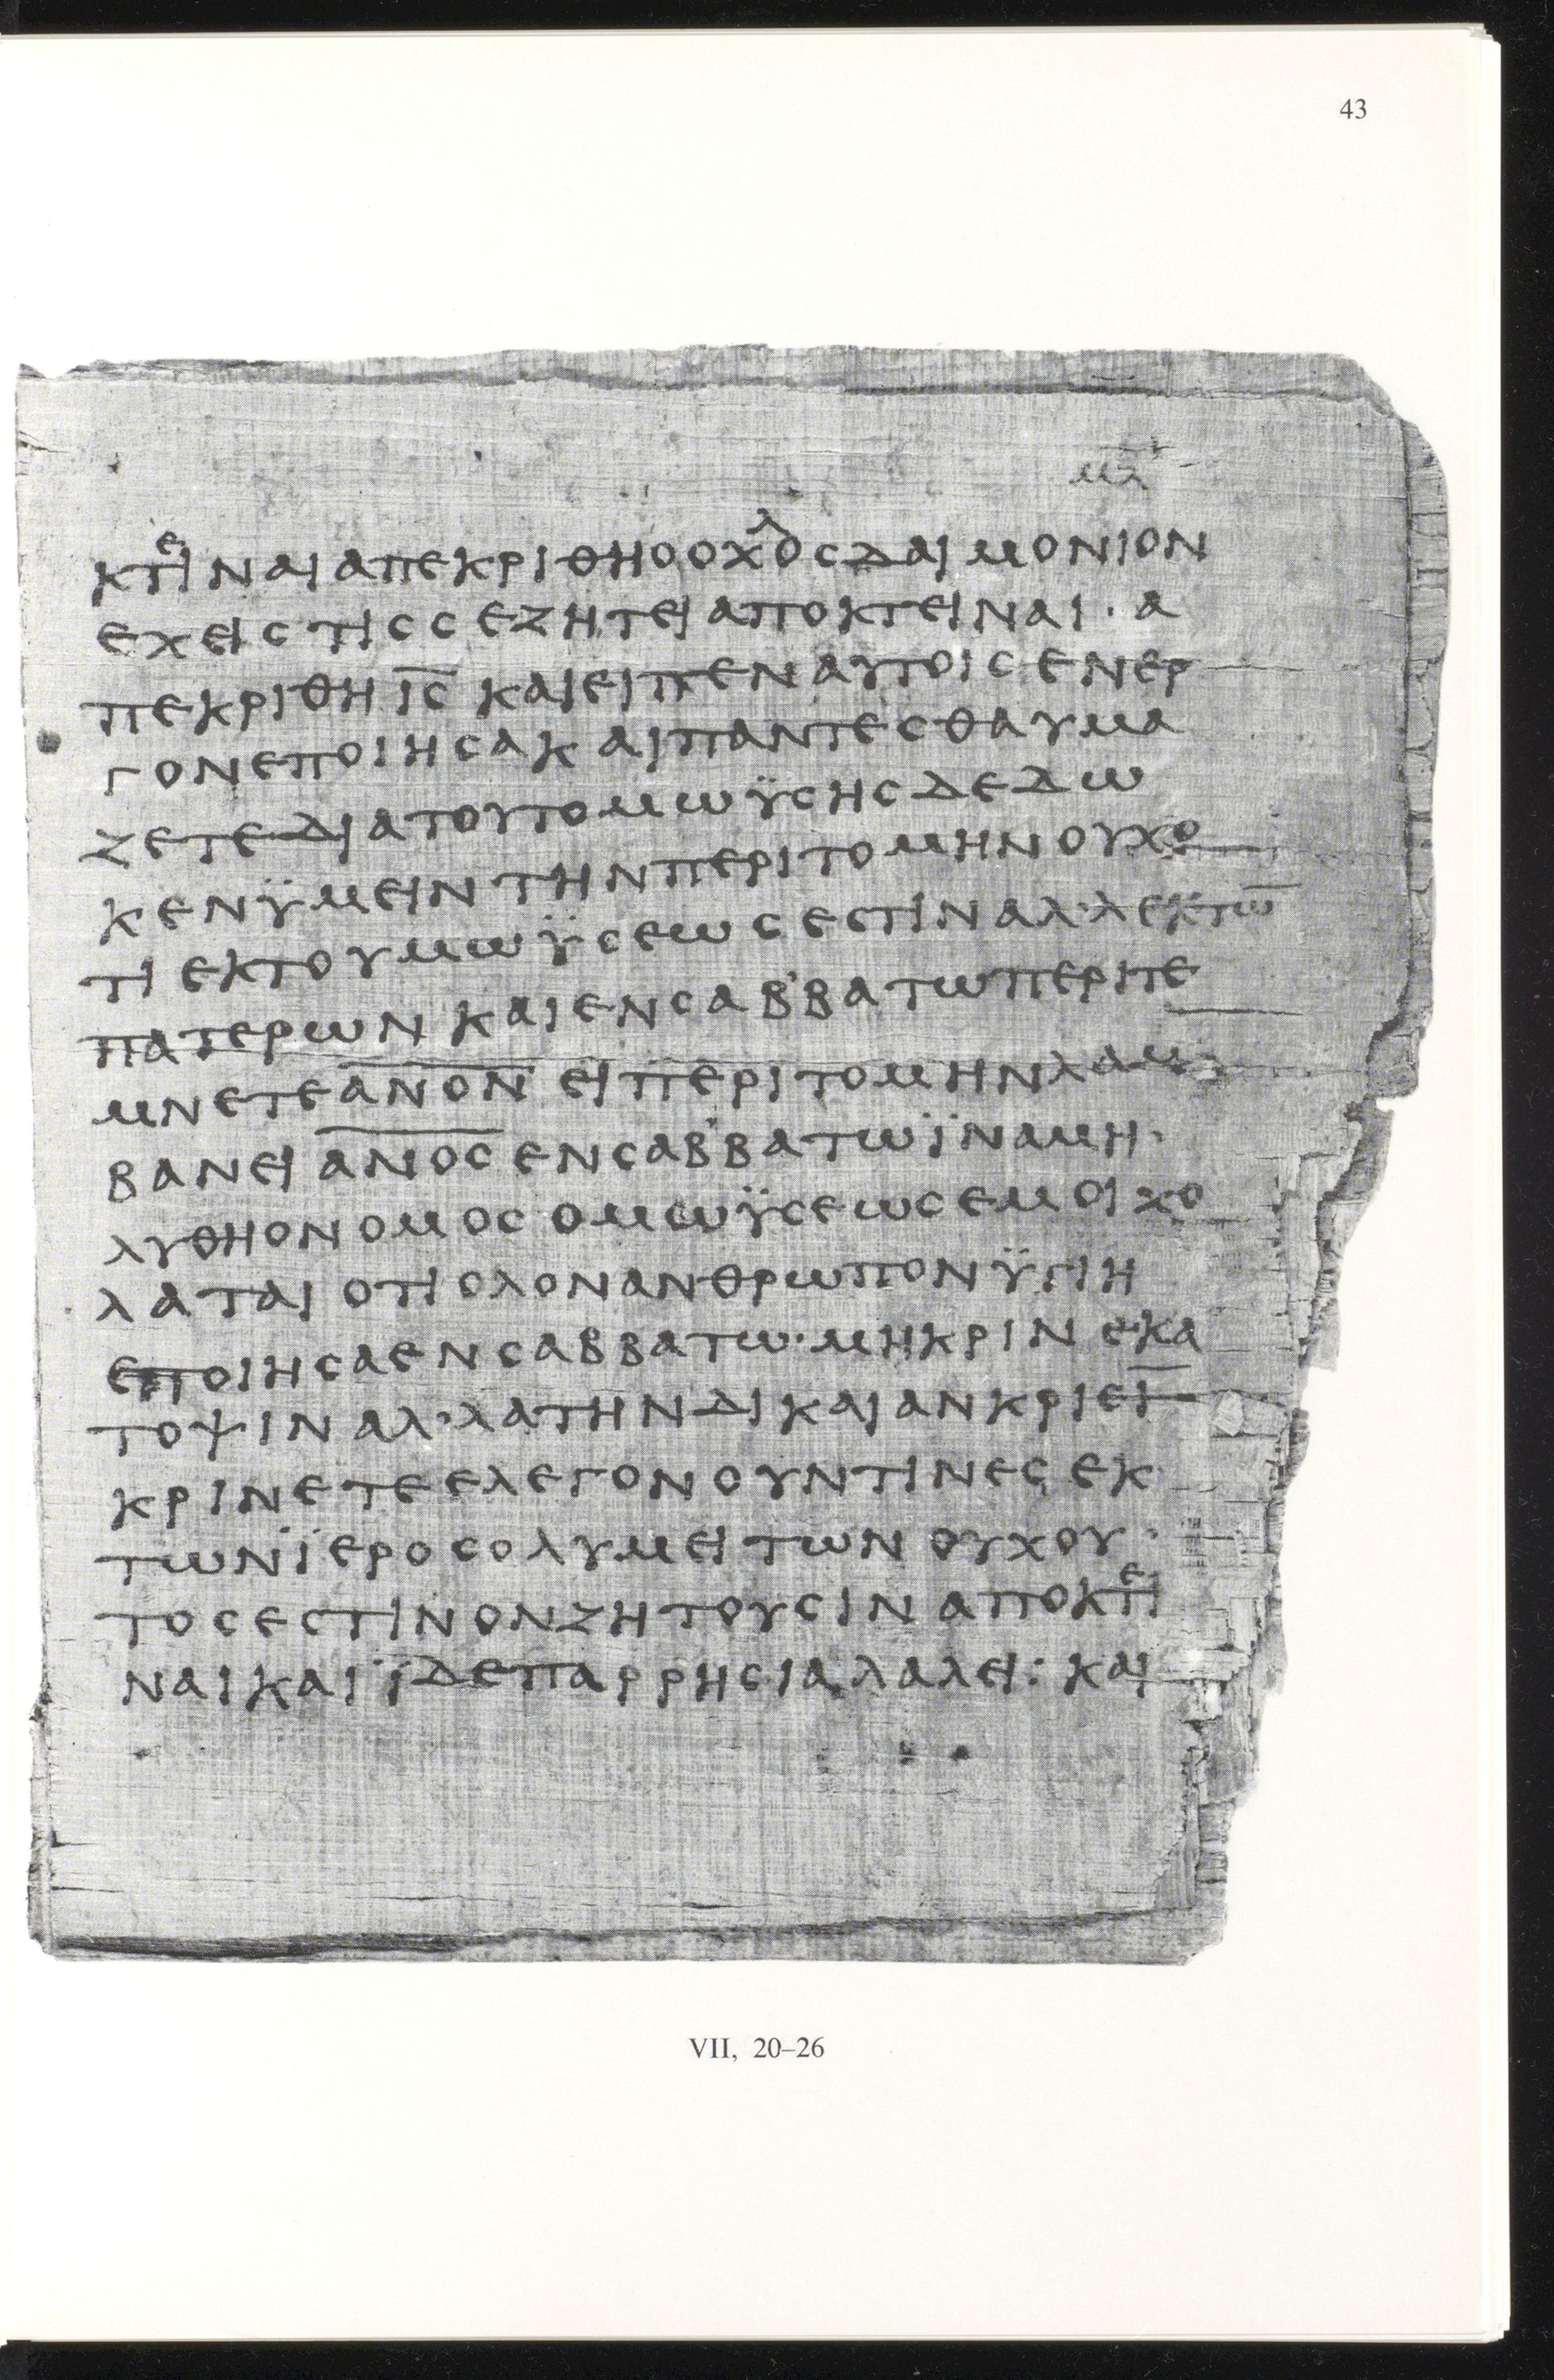 43
μα
κτειναιαπεκριθηοοχλοςδαιμονιον
εχειςτιςςεζητειαποκτειναι·α
πεκριθηι̅ς̅καιειπεναυτοιςενερ
γονεποιησακαιπαντεςθαυμα
ζετεδιατουτομωϋσηςδεδω
κενϋμειντηνπεριτομηνουχο
τιεκτουμωϋσεωςεστιναλ’λεκτω̅
πατερωνκαιενσαβ’βατωπεριτε
μνετεα̅ν̅ο̅ν̅ειπεριτομηνλαμ
βανεια̅ν̅ο̅ς̅ενσαβ’βατωϊναμη·
λυθηονομοςομωϋσεωςεμοιχο
λαταιοτιολονανθρωπονϋγιη
εποιησαενσαββατω·μηκρινεκα
τοψιναλ’λατηνδικαιανκριει̅
κρινετεελεγονουντινεςεκ
τωνϊεροσολυμειτωνουχου·
τοςεστινονζητουσιναποκτει
ναικαιϊδεπαρρησιαλαλει:και
VII, 20–26